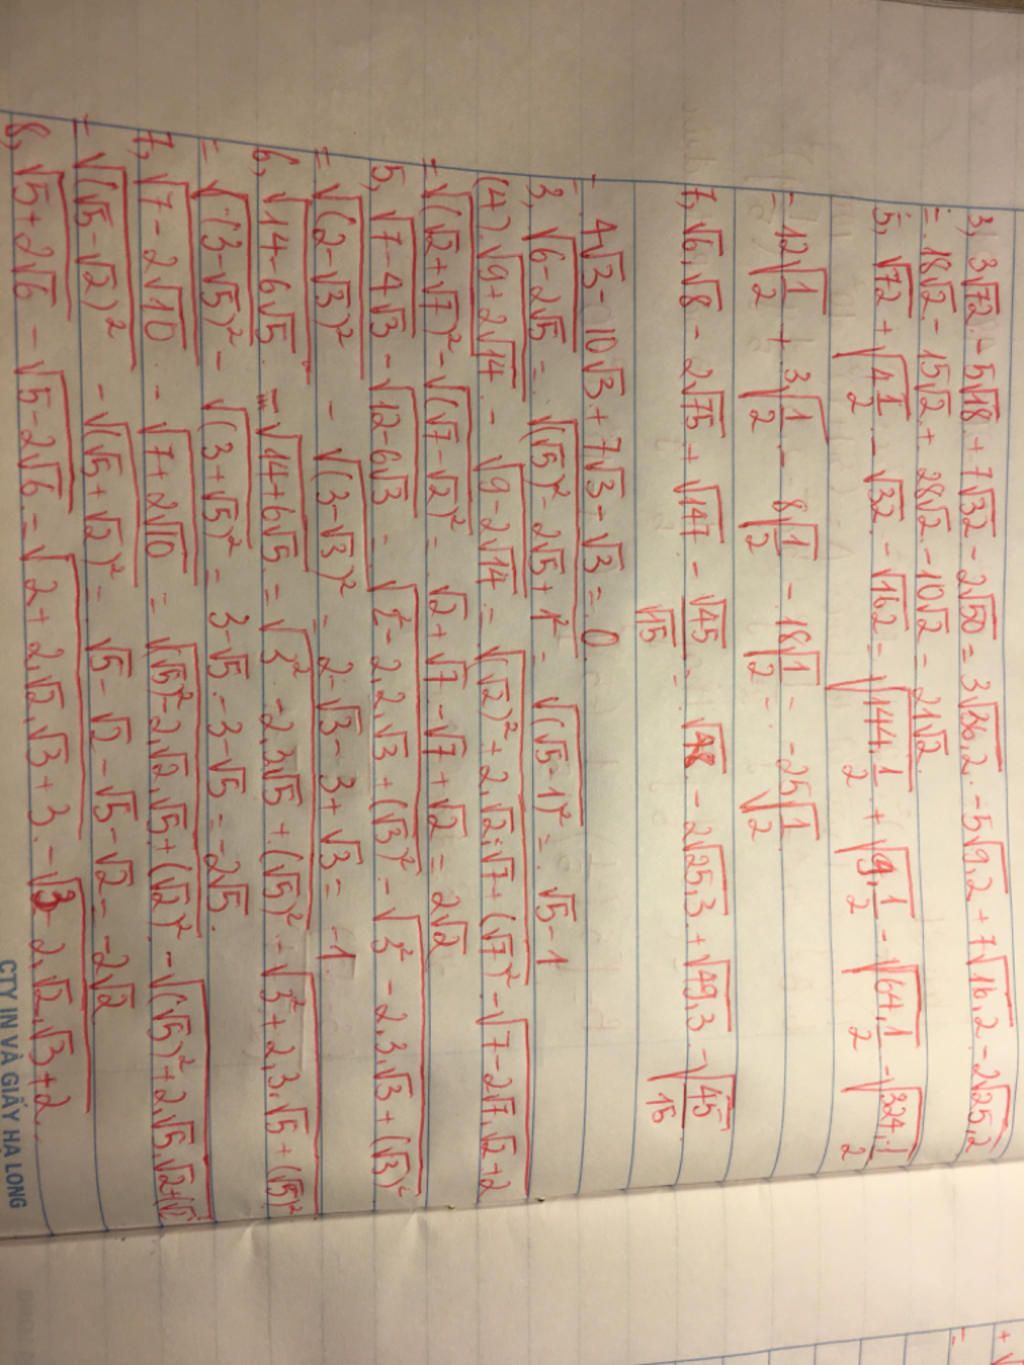 3, 3√72 - 5√18 + 7√32 - 2√50 = 3√36.2 - 5√9.2 + 7√16.2 - 2√25.2
= 18√2 - 15√2 + 28√2 - 10√2 = 21√2.
5, √72 + √(4 1/2) - √32 - √162 = √(144.1/2) + √(9.1/2) - √(64.1/2) - √(324.1/2)
= 12√(1/2) + 3√(1/2) - 8√(1/2) - 18√(1/2) = -25√(1/2)
7, √6.√8 - 2√75 + √147 - √45/√15 = √48 - 2√25.3 + √49.3 - √(45/15)
= 4√3 - 10√3 + 7√3 - √3 = 0
3, √(6-2√5) = √((√5)² - 2√5 + 1²) = √((√5-1)²) = √5-1
(4) √(9+2√14) - √(9-2√14) = √((√2)² + 2.√2.√7 + (√7)²) - √(7-2√7.√2+2)
= √((√2+√7)²) - √((√7-√2)²) = √2+√7-√7+√2 = 2√2
5, √(7-4√3) - √(12-6√3) = √(2² - 2.2.√3 + (√3)²) - √(3² - 2.3.√3 + (√3)²)
= √((2-√3)²) - √((3-√3)²) = 2-√3-3+√3 = -1
6, √(14-6√5) - √(14+6√5) = √(3² - 2.3√5 + (√5)²) - √(3² + 2.3.√5 + (√5)²)
= √((3-√5)²) - √((3+√5)²) = 3-√5-3-√5 = -2√5.
7, √(7-2√10) - √(7+2√10) = √((√5)² - 2.√2.√5 + (√2)²) - √((√5)² + 2.√5.√2 + (√2
= √((√5-√2)²) - √((√5+√2)²) = √5-√2-√5-√2 = -2√2
8, √(5+2√6) - √(5-2√6) = √(2+2.√2.√3+3) - √(3-2.√2.√3+2)
CTY IN VÀ GIẤY HẠ LONG